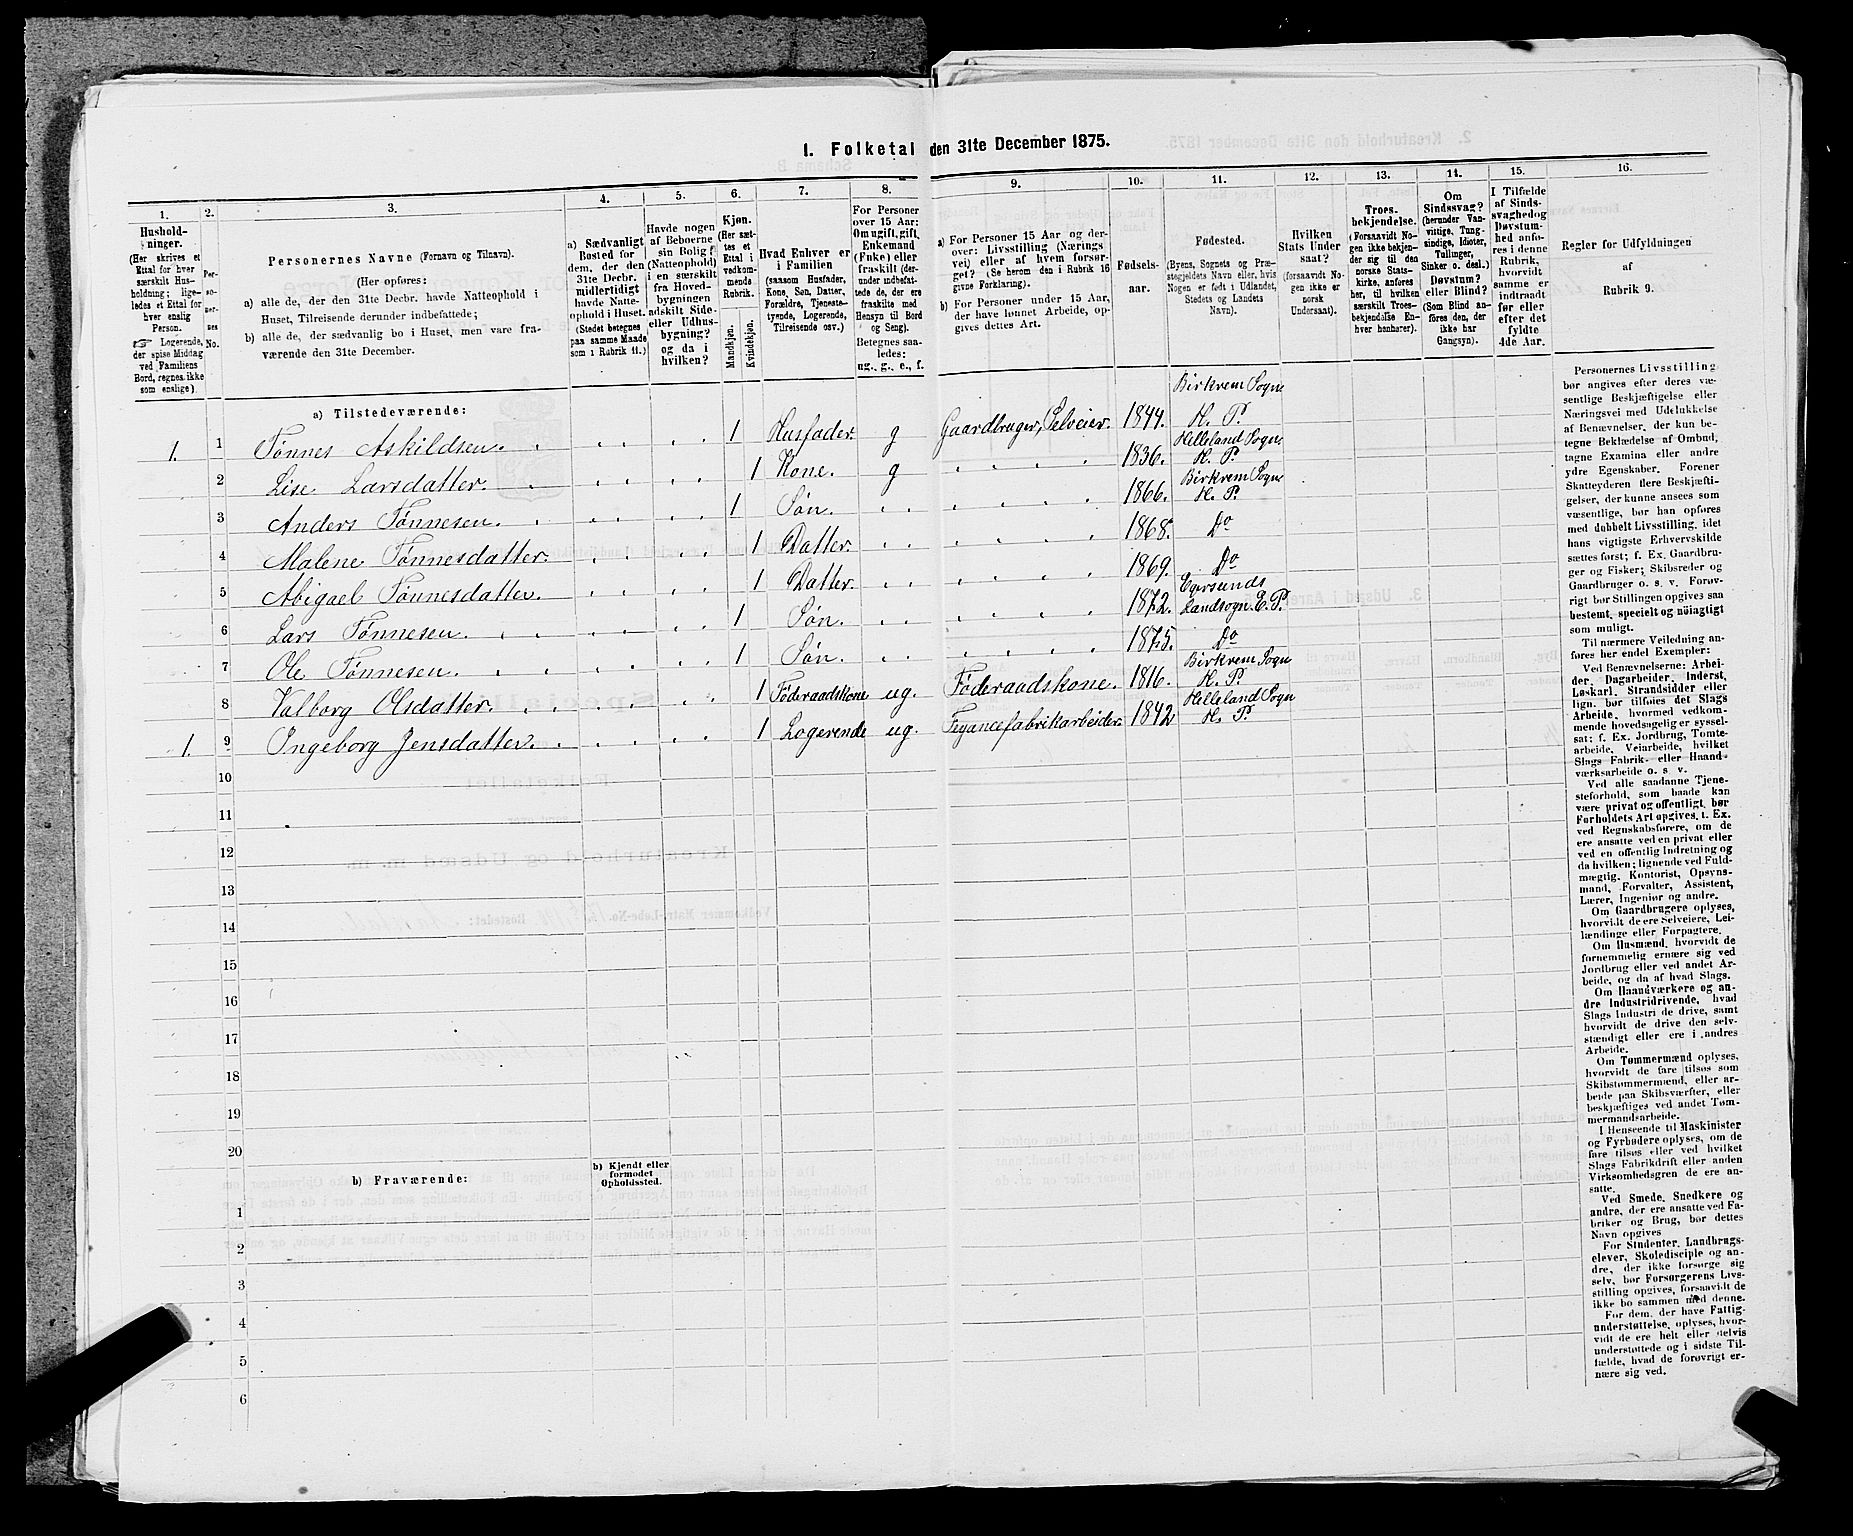 I. Folketal den 31te December 1875.
1. 2. 3. 4. 5. 6. 7. 8. 9. 10. 11. 12. 13. 14. 15. 16.
Hushold-
ninger.
(Her skrives et
Ettal for hver
særskilt Hus-
holdning; lige-
ledes et Ettal for
hver enslig
Person.
☞ Logerende,
der spise Middag
ved Familiens
Bord, regnes ikke
som enslige).
Per-
so-
ner-
nes
No.
Personernes Navne (Fornavn og Tilnavn).
(Her opføres:
a) alle de, der den 31te Decbr. havde Natteophold i
Huset, Tilreisende derunder indbefattede;
b) alle de, der sædvanlig bo i Huset, men vare fra-
værende den 31te December.
a) Sædvanligt
Bosted for
dem, der den
31te Decbr.
midlertidigt
havde Natte-
ophold i Huset.
(Stedet betegnes
paa samme Maade
som i Rubrik 11.)
Havde nogen
af Beboerne
sin Bolig
(Natteophold)
i en særskilt
fra Hoved-
bygningen
adskilt Side-
eller Udhus-
bygning?
og da i
hvilken?
Kjøn.
(Her sæt-
tes et
Ettal i
vedkom-
mende
Rubrik.
Mandkjøn.
Kvindekjøn.
Hvad Enhver er
i Familien
(saasom Husfader,
Kone, Søn, Datter,
Forældre, Tjeneste-
tyende, Logerende,
Tilreisende osv.)
For Personer
over 15 Aar:
Om ugift, gift,
Enkemand
(Enke) eller
fraskilt (der-
under indbefat-
tede de, der ere
fraskilte med
Hensyn til Bord
og Seng).
Betegnes saa-
ledes:
ug., g., e., f.
a) For Personer 15 Aar og der-
over: Livsstilling (Nærings-
vei) eller af hvem forsør-
get? (Se herom den i Rubrik 16
givne Forklaring).
b) For Personer under 15 Aar,
der have lønnet Arbeide, op-
gives dettes Art.
Fødsels-
aar.
Fødested.
(Byens, Sognets og Præ-
stegjeldets Navn eller, hvis
Nogen er født i Udlandet,
Stedets og Landets
Navn).
Hvilken
Stats Under
saat?
(forsaavidt No-
gen ikke er
norsk
Undersaat).
Troes-
bekjendelse.
(Forsaavidt No-
gen ikke bekjen-
der sig til den
norske Stats-
kirke, anføres
her, til hvilken
særskilt Troes-
bekjendelse En-
hver henhører).
Om
Sindssvag?
(herunder Van-
vittige, Tung-
sindige, Idioter,
Tullinger,
Sinker o. desl.)
Døvstum?
eller Blind?
(Som Blind an-
føres den, der
ikke har
Gangsyn).
I Tilfælde
af Sinds-
svaghed og
Døvstum-
hed anfø-
res i denne
Rubrik,
hvorvidt
samme er
indtraadt
før eller
efter det
fyldte
4de Aar.
Regler for Udfyldningen
af
Rubrik 9.
a) Tilstedeværende:
1. 1 Tønnes Askildsen. 1 Husfader. g Gaardbruger, Selveier. 1844. Birkrem Sogn H. P.
2 Lise Larsdatter. 1 Kone. g 1836. Helleland Sogn H. P.
3 Anders Tønnesen. 1 Søn. 1866. Birkrem Sogn H. P.
4 Malene Tønnesdatter. 1 Datter. 1868. Do
5 Abigael Tønnesdatter. 1 Datter. 1869. Do
6 Lars Tønnesen. 1 Søn. 1872. Egersunds Landsogn. E. P.
7 Ole Tønnesen. 1 Søn. 1875. Do
8 Valborg Olsdatter. 1 Føderaadskone ug. Føderaadskone. 1816. Birkrem Sogn H. P.
1. 9 Ingeborg Jensdatter. 1 Logerende ug. Fyancefabrikarbeider. 1842 Helleland Sogn H. P.
10
11
12
13
14
15
16
17
18
19
20
b) Fraværende:
b) Kjendt eller
formodet
Opholdssted.
1
2
3
4
5
6
Personernes Livsstilling
bør angives efter deres væ-
sentlige Beskjæftigelse eller
Næringsvei med Udelukkelse
af Benævnelser, der kun be-
tegne Beklædelse af Ombud,
tagne Examina eller andre
ydre Egenskaber. Forener
Skatteyderen flere Beskjæfti-
gelser, der kunne ansees som
væsentlige, bør han opføres
med dobbelt Livsstilling, idet
hans vigtigste Erhvervskilde
sættes først; f. Ex. Gaardbru-
ger og Fisker; Skibsreder og
Gaardbruger o. s. v. Forøv-
rigt bør Stillingen opgives saa
bestemt, specielt og nöiagtigt
som muligt.
Til nærmere Veiledning an-
føres her endel Exempler:
Ved Benævnelserne: Arbei-
der, Dagarbeider, Inderst,
Løskarl, Strandsidder eller
lign. bør tilføies det Slags
Arbeide, hvormed vedkom-
mende hovedsagelig er syssel-
sat; f. Ex. Jordbrug, Tomte-
arbeide, Veiarbeide, hvilket
Slags Fabrik- eller Haand-
værksarbeide o. s. v.
Ved alle saadanne Tjene-
steforhold, som baade kan
være privat og offentligt, bør
Forholdets Art opgives, t. Ex.
ved Regnskabsførere, om de
ere ansatte ved en privat eller
ved en offentlig Indretning og
da hvilken; lignende ved Fuld-
mægtig, Kontorist, Opsyns-
mand, Forvalter, Assistent,
Lærer, Ingeniør og andre.
Om Gaardbrugere oplyses,
hvorvidt de ere Selveiere, Lei-
lændinge eller Forpagtere.
Om Husmænd, hvorvidt de
fornemmelig ernære sig ved
Jordbrug eller ved andet Ar-
beide, og da af hvad Slags.
Om Haandværkere og an-
dre Industridrivende, hvad
Slags Industri de drive, samt
hvorvidt de drive den selv-
stændigt eller ere i andres
Arbeide.
Om Tømmermænd oplyses,
hvorvidt de fare tilsøs som
Skibstømmermænd, eller ar-
beide paa Skibsværfter, eller
beskjæftiges ved andet Tøm-
mermandsarbeide.
I Henseende til Maskinister
og Fyrbødere oplyses, om de
fare tilsøs eller ved hvilket
Slags Fabrikdrift eller anden
Virksomhedsgren de ere an-
satte.
Ved Smede, Snedkere og
andre, der ere ansatte ved Fa-
briker og Brug, bør dettes
Navn opgives
For Studenter, Landbrugs-
elever, Skoledisciple og an-
dre, der ikke forsørge sig
selv, bør Forsørgerens Livs-
stilling opgives, forsaavidt de
ikke bo sammen med denne.
For dem, der have Fattig-
understøttelse, oplyses, hvor-
vidt de ere helt eller delvis
understøttede og i sidste Til-
fælde, hvad de forøvrigt er-
nære sig ved.